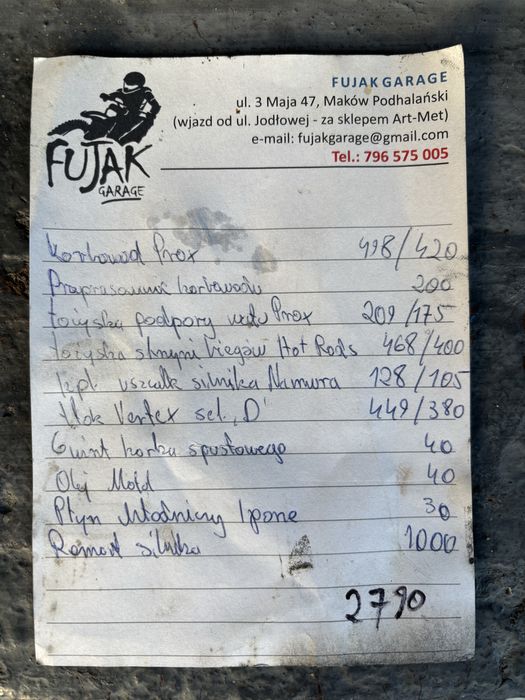 FUJAK
GARAGE
FUJAK GARAGE
ul. 3 Maja 47, Maków Podhalański
(wjazd od ul. Jodłowej - za sklepem Art-Met)
e-mail: fujakgarage@gmail.com
Tel.: 796 575 005
Korbowód Prox 498/420
Przeprasowanie korbowodu 200
Łożyska podpory wału Prox 209/175
Łożyska skrzyni biegów Hot Rods 468/400
kpl. uszczelk silnika Namura 128/105
Tłok Vertex sel. "D" 449/380
Gwint korka spustowego 40
Olej Motul 40
Płyn chłodniczy Ipone 30
Remont silnika 1000
2790